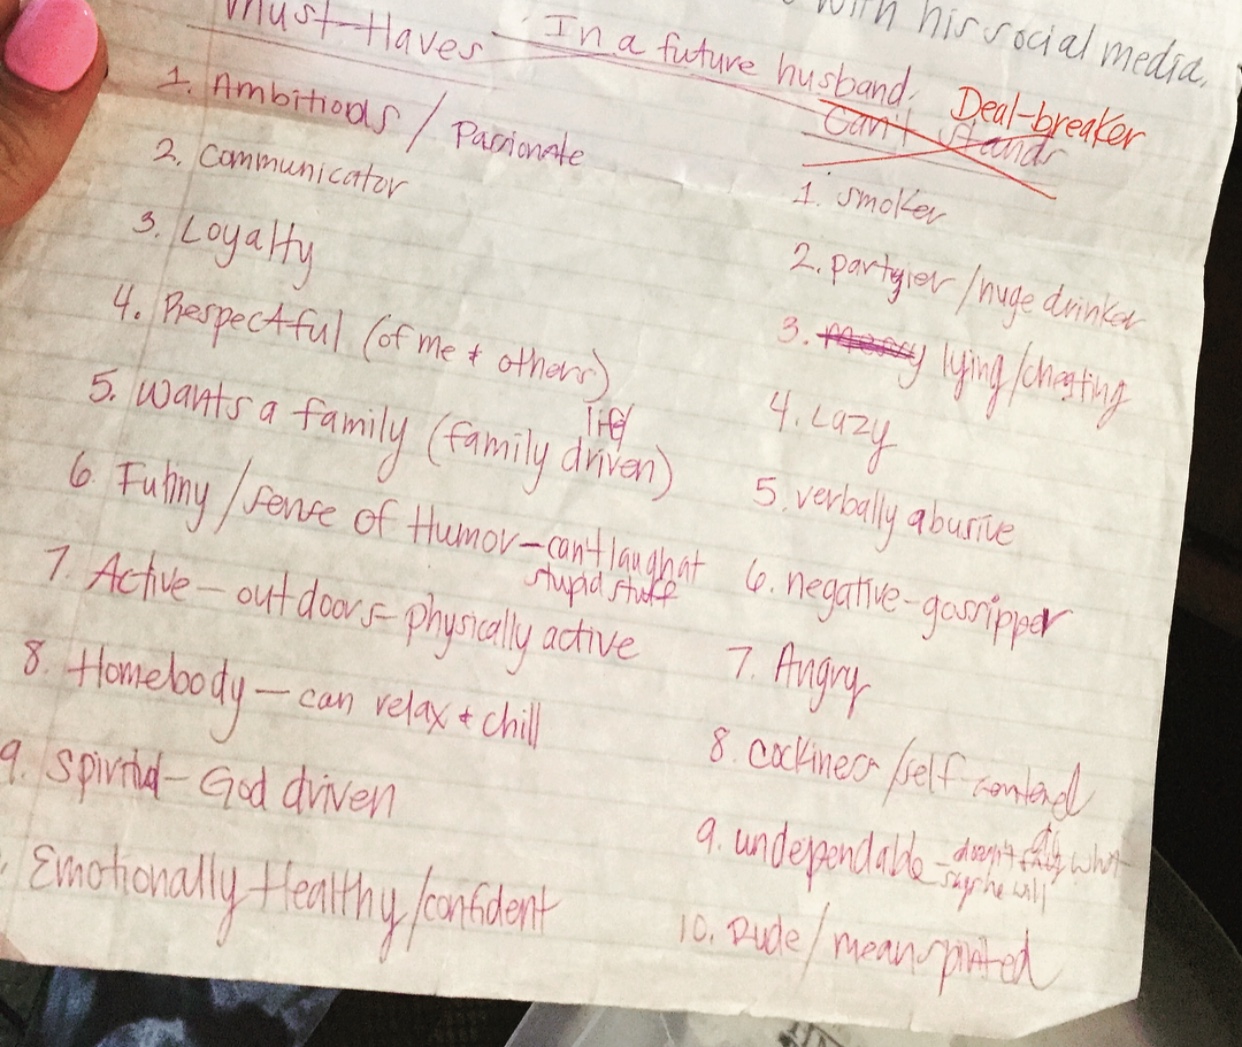 with his social media.
Must-Haves In a future husband.
1. Ambitious / Passionate
2. Communicator
3. Loyalty
4. Respectful (of me + others)
5. Wants a family (family life/ driven)
6. Funny / sense of Humor - can't laugh at
stupid stuff
7. Active - outdoors - physically active
8. Homebody - can relax + chill
9. Spiritual - God driven
Emotionally Healthy / confident
Deal-breaker
Can't Stands
1. smoker
2. partyier / huge drinker
3. lying / cheating
4. Lazy
5. verbally abusive
6. negative - gossipper
7. Angry
8. cockiness / self-centered
9. undependable - doesn't do what
says he will
10. Rude / mean spirited